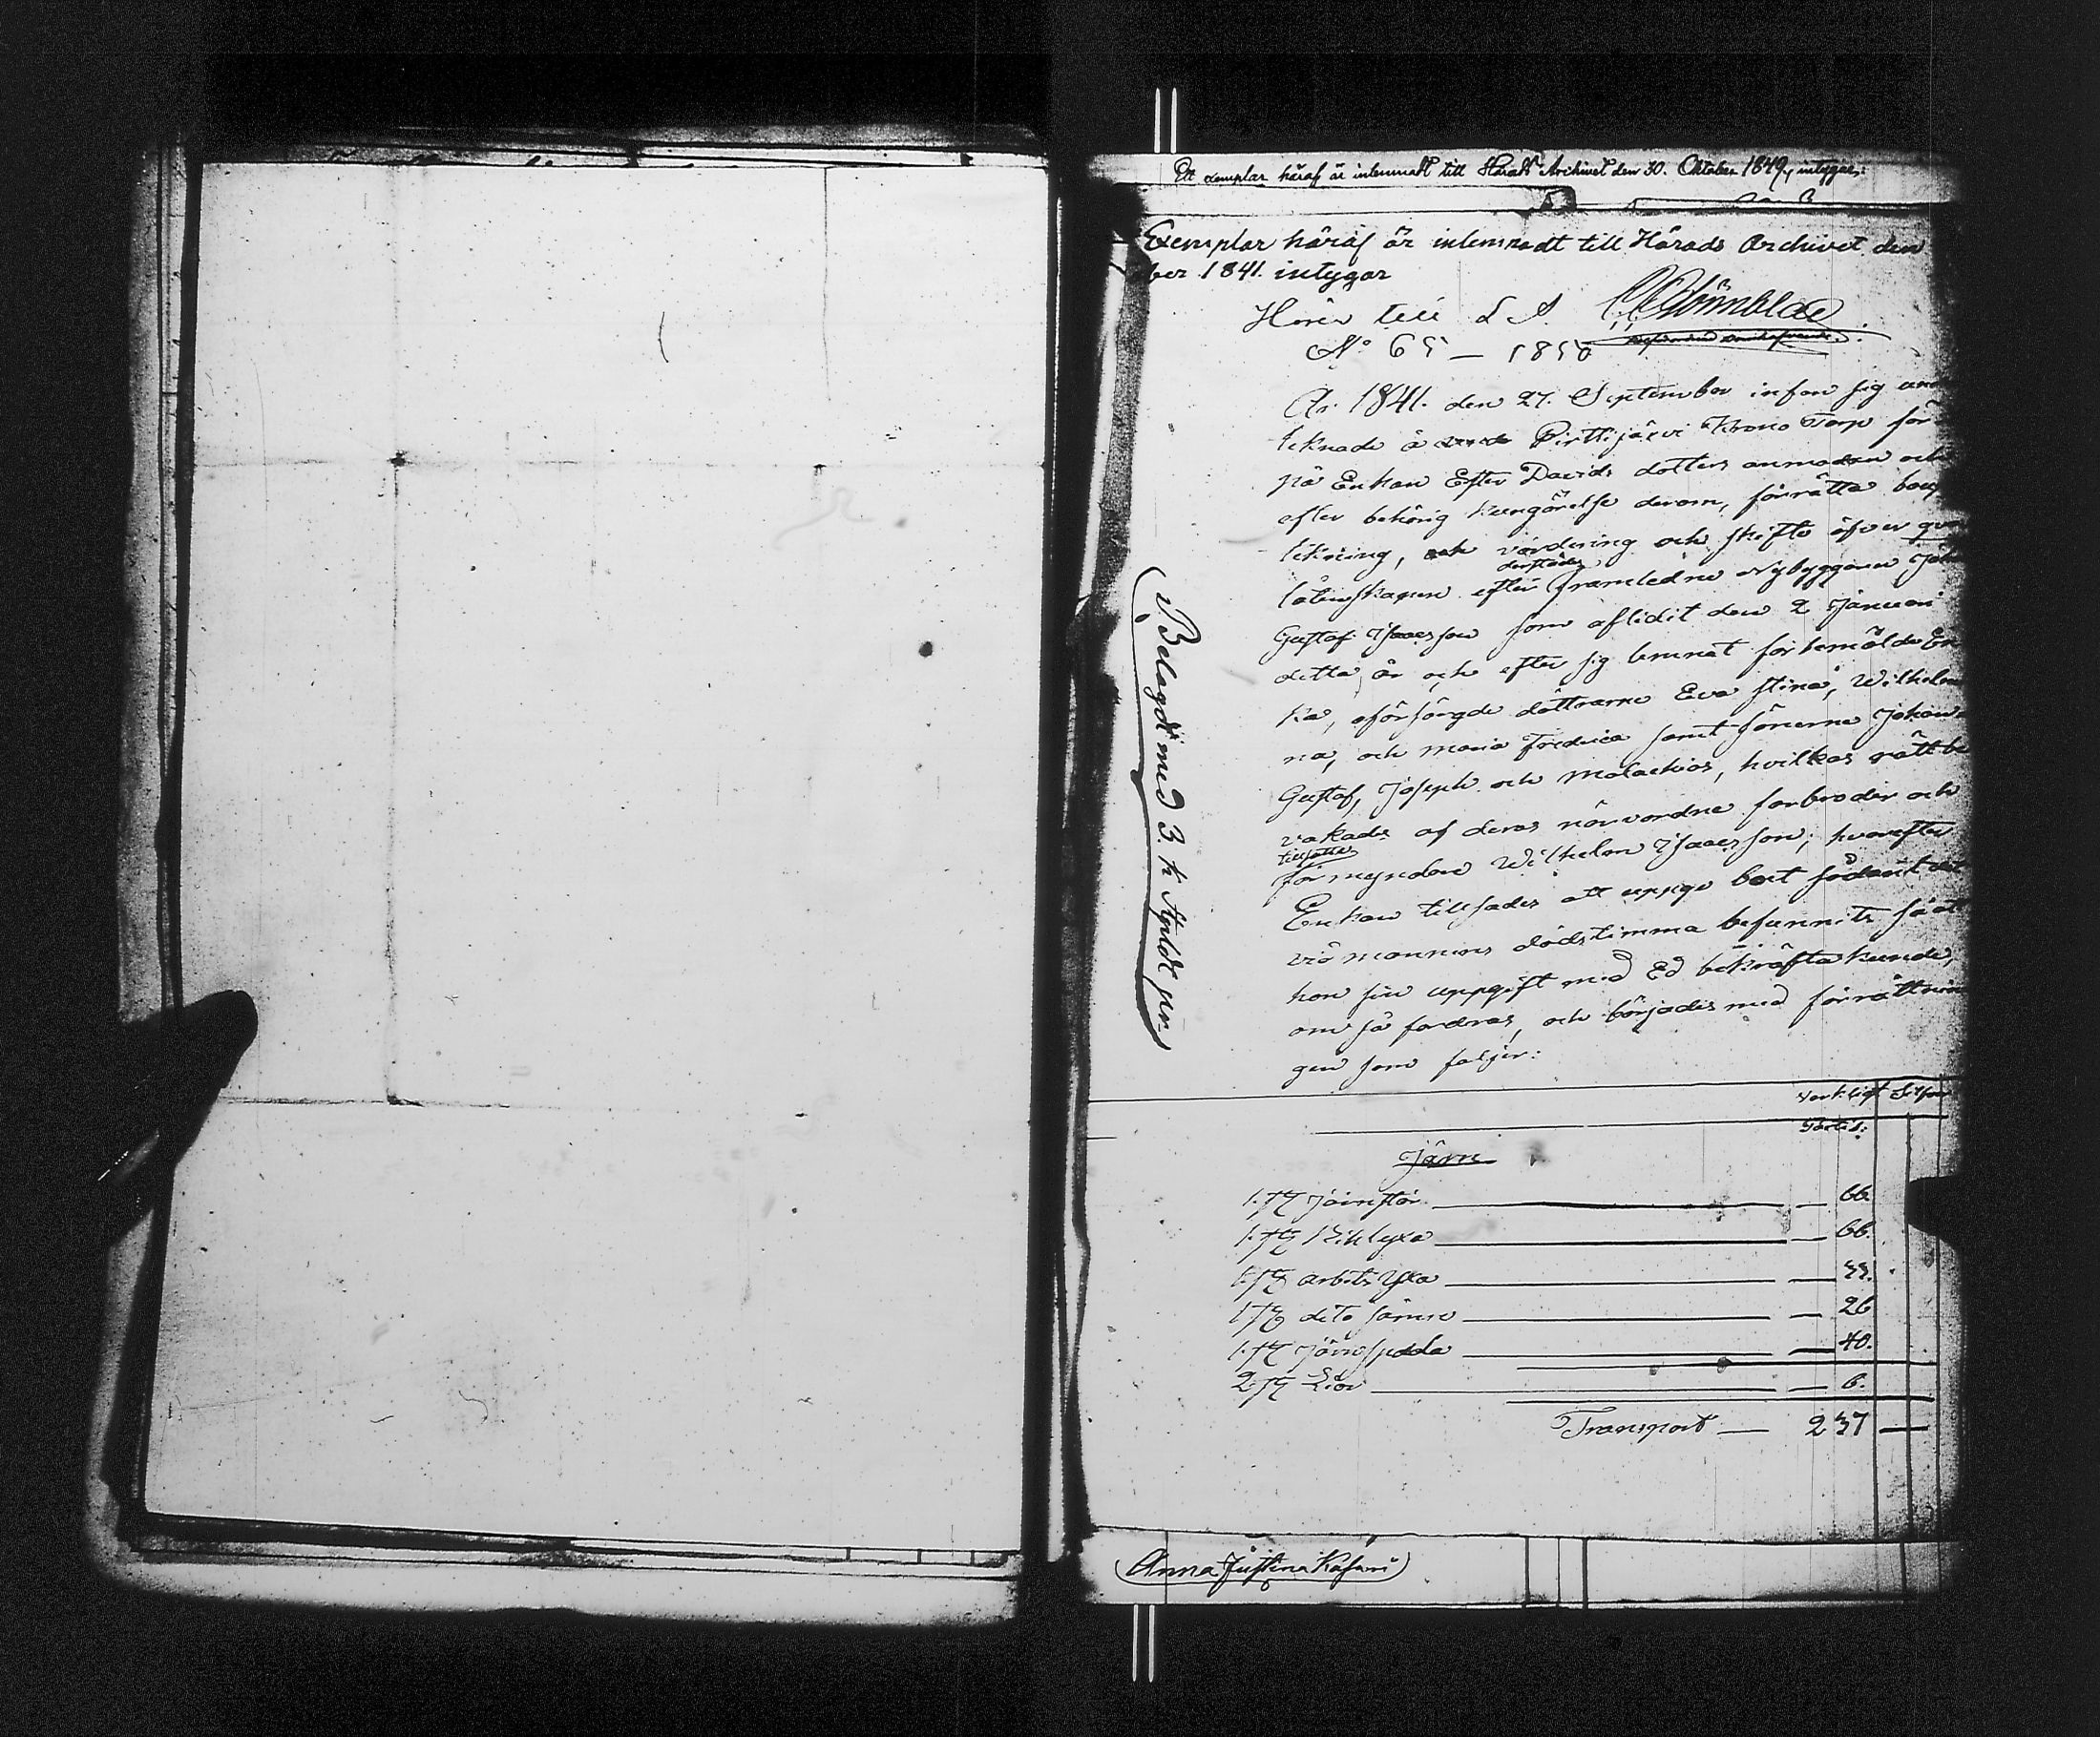 Ett exemplar häraf är inlemnadt till Härads Archivet den 30. Oktober 1849, intygar:
Exemplar häraf är inlemnadt till Härads Archivet den
ber 1841. intygar
Hörer till
No 65 — 1850
År 1841. den 27. September infan sig und
teknade å Pirttijärvi Krono Torp för
på Enkan Ester Davids dotters anmodan och
efter behörig kungörelse derom, förrätta boup
tekning, och värdering och skifte öfver qvar
låtenskapen efter derstädes framledne Nybyggaren Joh
Gustaf Isacsson som aflidit den 2 Januari
detta år och efter sig lemnat förbemälde En
ka, oförsörgde döttrarne Eva Stina, Wilhelmi
na, och Maria Fredrica samt sönerne Johan
Gustaf, Joseph och Malachias, hvilkas rätt be
vakades af deras närvordne farbroder och
tillsatte
förmyndare Wilhelm Isacsson; hvarefter
Enkan tillsades att uppge boet sådant det
vid mannens dödstimma befunnits så att
hon sin uppgift med Ed bekräfta kunde,
om så fordras, och börjades med förrättnin
gen som följer:
Belagdt med 3. k
Verkligt Silfver
Järn
1. st Järnstör — 66.
1. st — 66.
1. st arbets Yxa — 33.
1 st dito sämre — 26
1. st Järnspada — 40.
2. st Liar — 6.
Transport — 237 —
(Anna Justina)